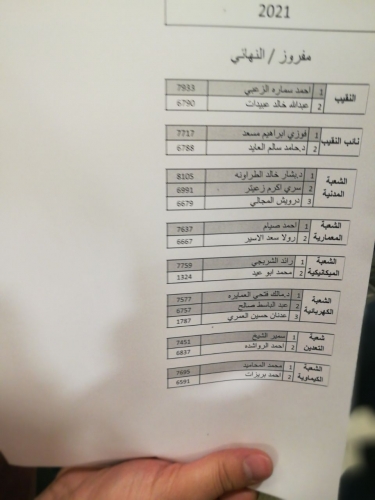 2021
مفروز / النهائي
النقيب 1 احمد سماره الزعبي 7933
2 عبدالله خالد عبيدات 6790
نائب النقيب 1 فوزي ابراهيم مسعد 7717
2 د.حامد سالم العايد 6788
الشعبة المدنية 1 د.بشار خالد الطراونه 8105
2 سري اكرم زعيتر 6991
3 درويش المجالي 6679
الشعبة المعمارية 1 احمد صيام 7637
2 رولا سعد الاسير 6667
الشعبة الميكانيكية 1 رائد الشربجي 7759
2 محمد ابو عيد 1324
الشعبة الكهربائية 1 د.مالك فتحي العمايره 7577
2 عبد الباسط صالح 6757
3 عدنان حسين العمري 1787
شعبة التعدين 1 سمير الشيخ 7451
2 احمد الرواشده 6837
الشعبة الكيماوية 1 محمد المحاميد 7695
2 احمد بريزات 6591